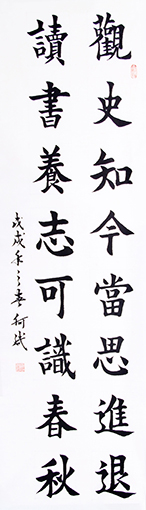 觀史知今當思進退
讀書養志可識春秋
戊戌年之春